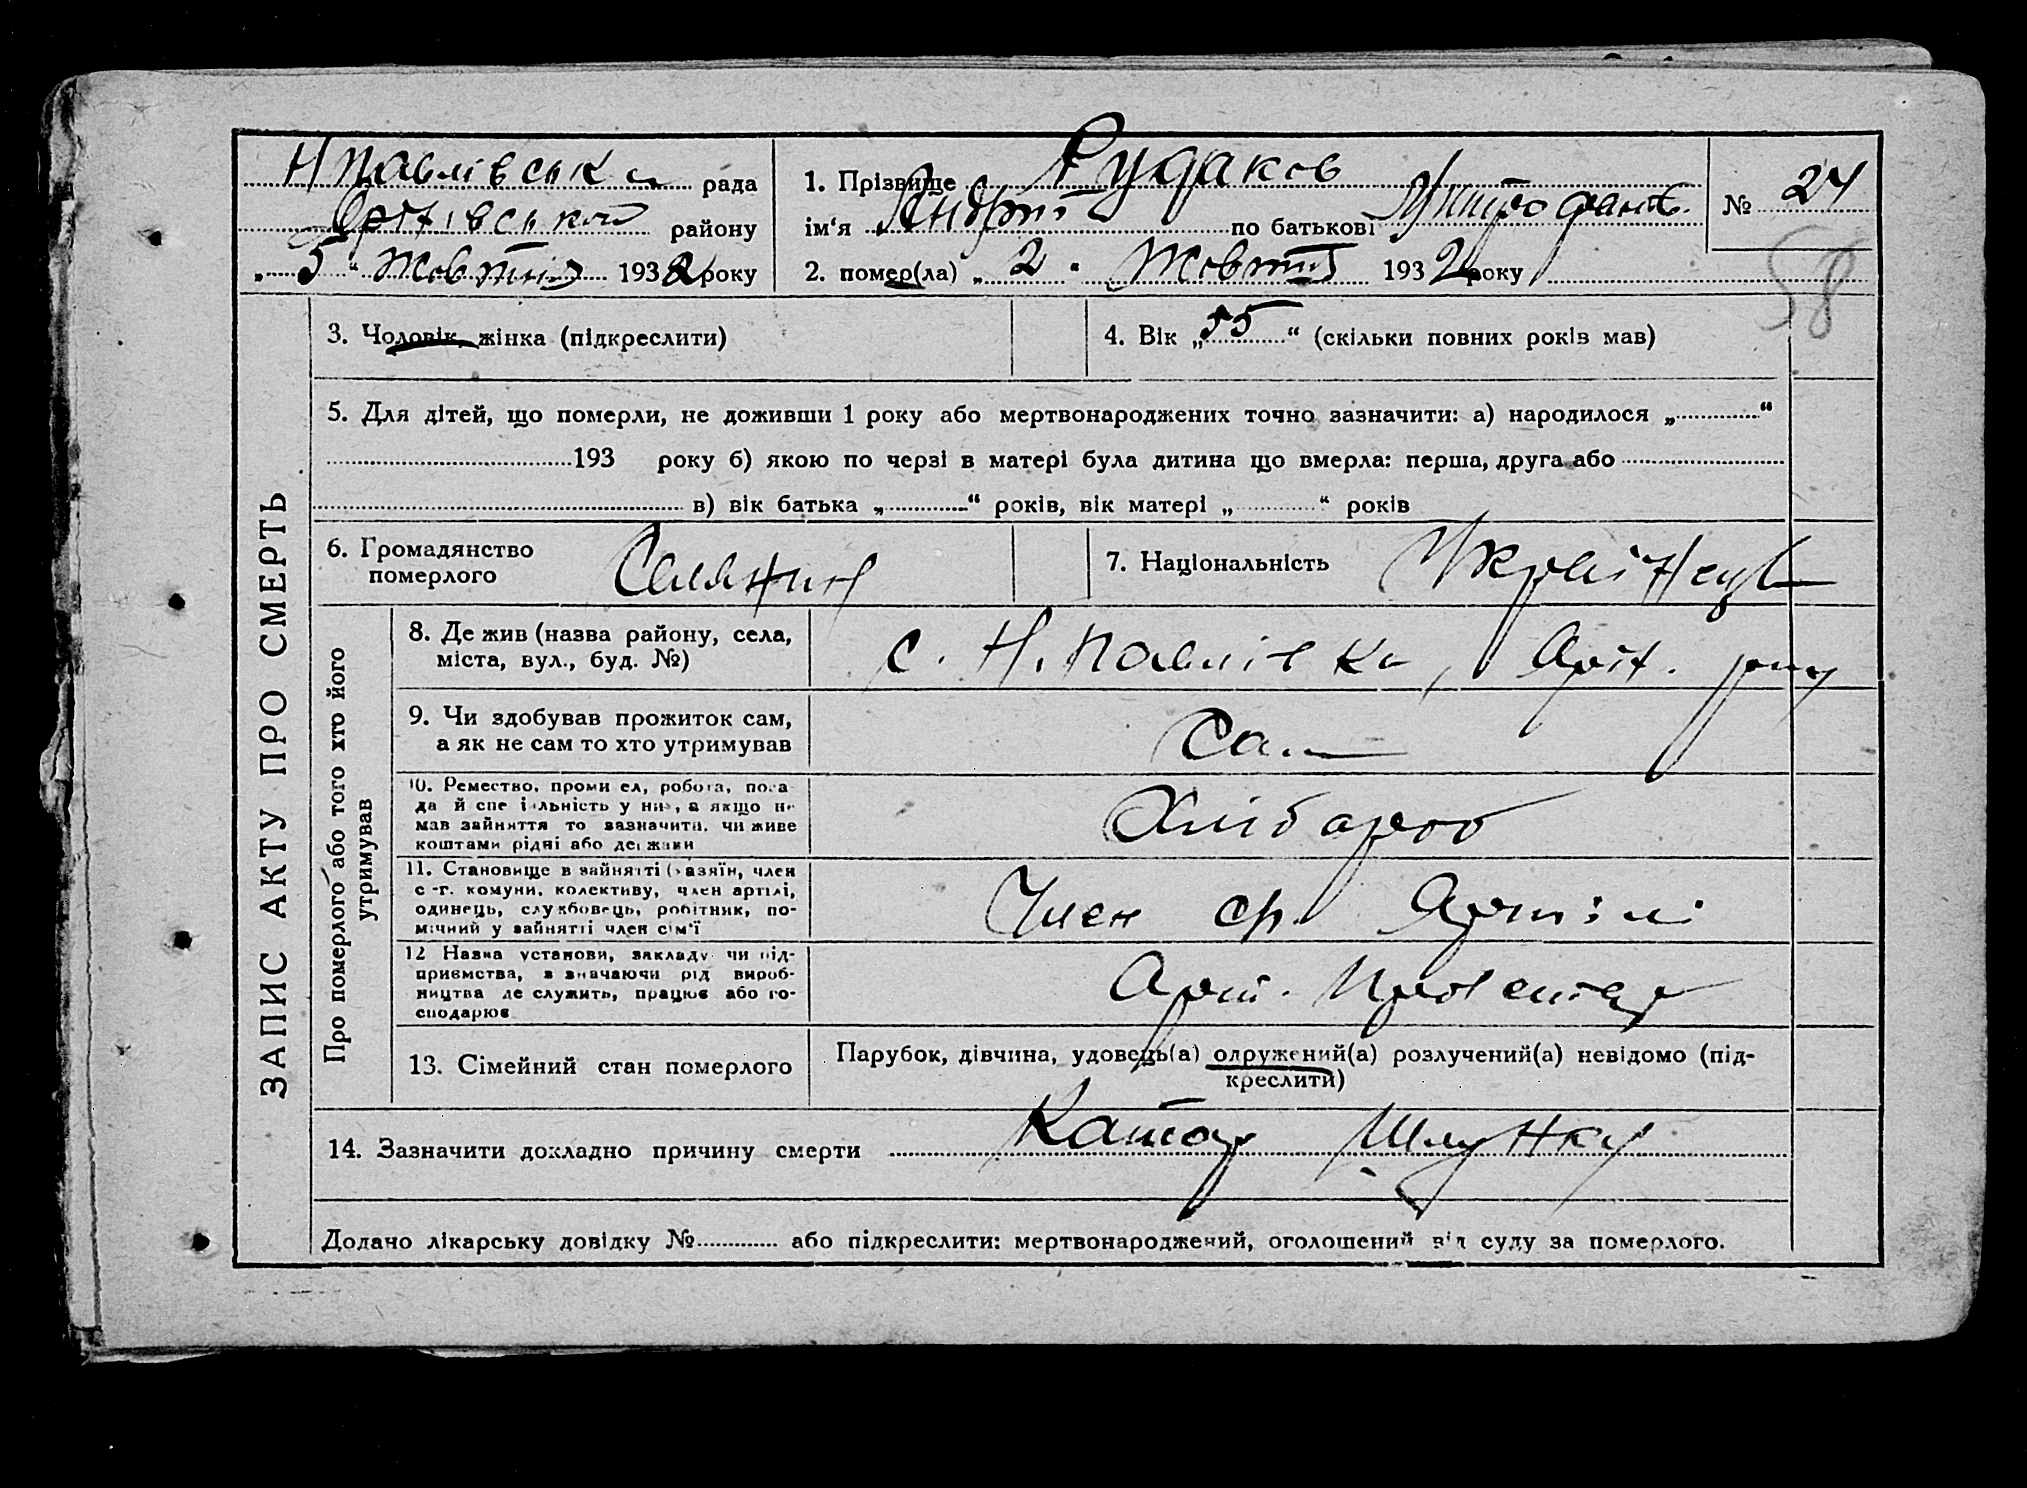 ЗАПИС АКТУ ПРО СМЕРТЬ
Н Павлівська рада
Оріхівської району
„5“ Жовтня 1932 року
1. Прізвище Рудаков
ім‘я Андрій по батькові Митрофанов.
2. помер(ла) „2“ Жовтня 1932 року
№ 24
58
3. Чоловік, жінка (підкреслити)
4. Вік „55“ (скільки повних років мав)
5. Для дітей, що померли, не доживши 1 року або мертвонароджених точно зазначити: а) народилося „ “
193 року б) якою по черзі в матері була дитина що вмерла: перша, друга або
в) вік батька „ “ років, вік матері „ “ років
6. Громадянство
померлого Селянин
7. Національність Українець
Про померлого або того хто його
утримував
8. Де жив (назва району, села,
міста, вул., буд. №)
с. Н. Павлівка, Оріх. рну
9. Чи здобував прожиток сам,
а як не сам то хто утримував
Сам
10. Ремество, проми ел, робота, поса
да й спе і льність у ни , а якщо не
мав зайняття то зазначити, чи живе
коштами рідні або держави
Хлібороб
11. Становище в зайнятті (хазяїн, член
с-г. комуни, колективу, член артілі,
одинець, службовець, робітник, по-
мічний у зайнятті член сім‘ї
Член ср. Артілі
12 Назва установи, закладу чи під-
приємства, зазначаючи рід вироб-
ництва де служить, працює або го-
сподарює
Арт.
13. Сімейний стан померлого
Парубок, дівчина, удовець(а) одружений(а) розлучений(а) невідомо (під-
креслити)
14. Зазначити докладно причину смерти Катар Шлунку
Додано лікарську довідку № або підкреслити: мертвонароджений, оголошений від суду за померлого.